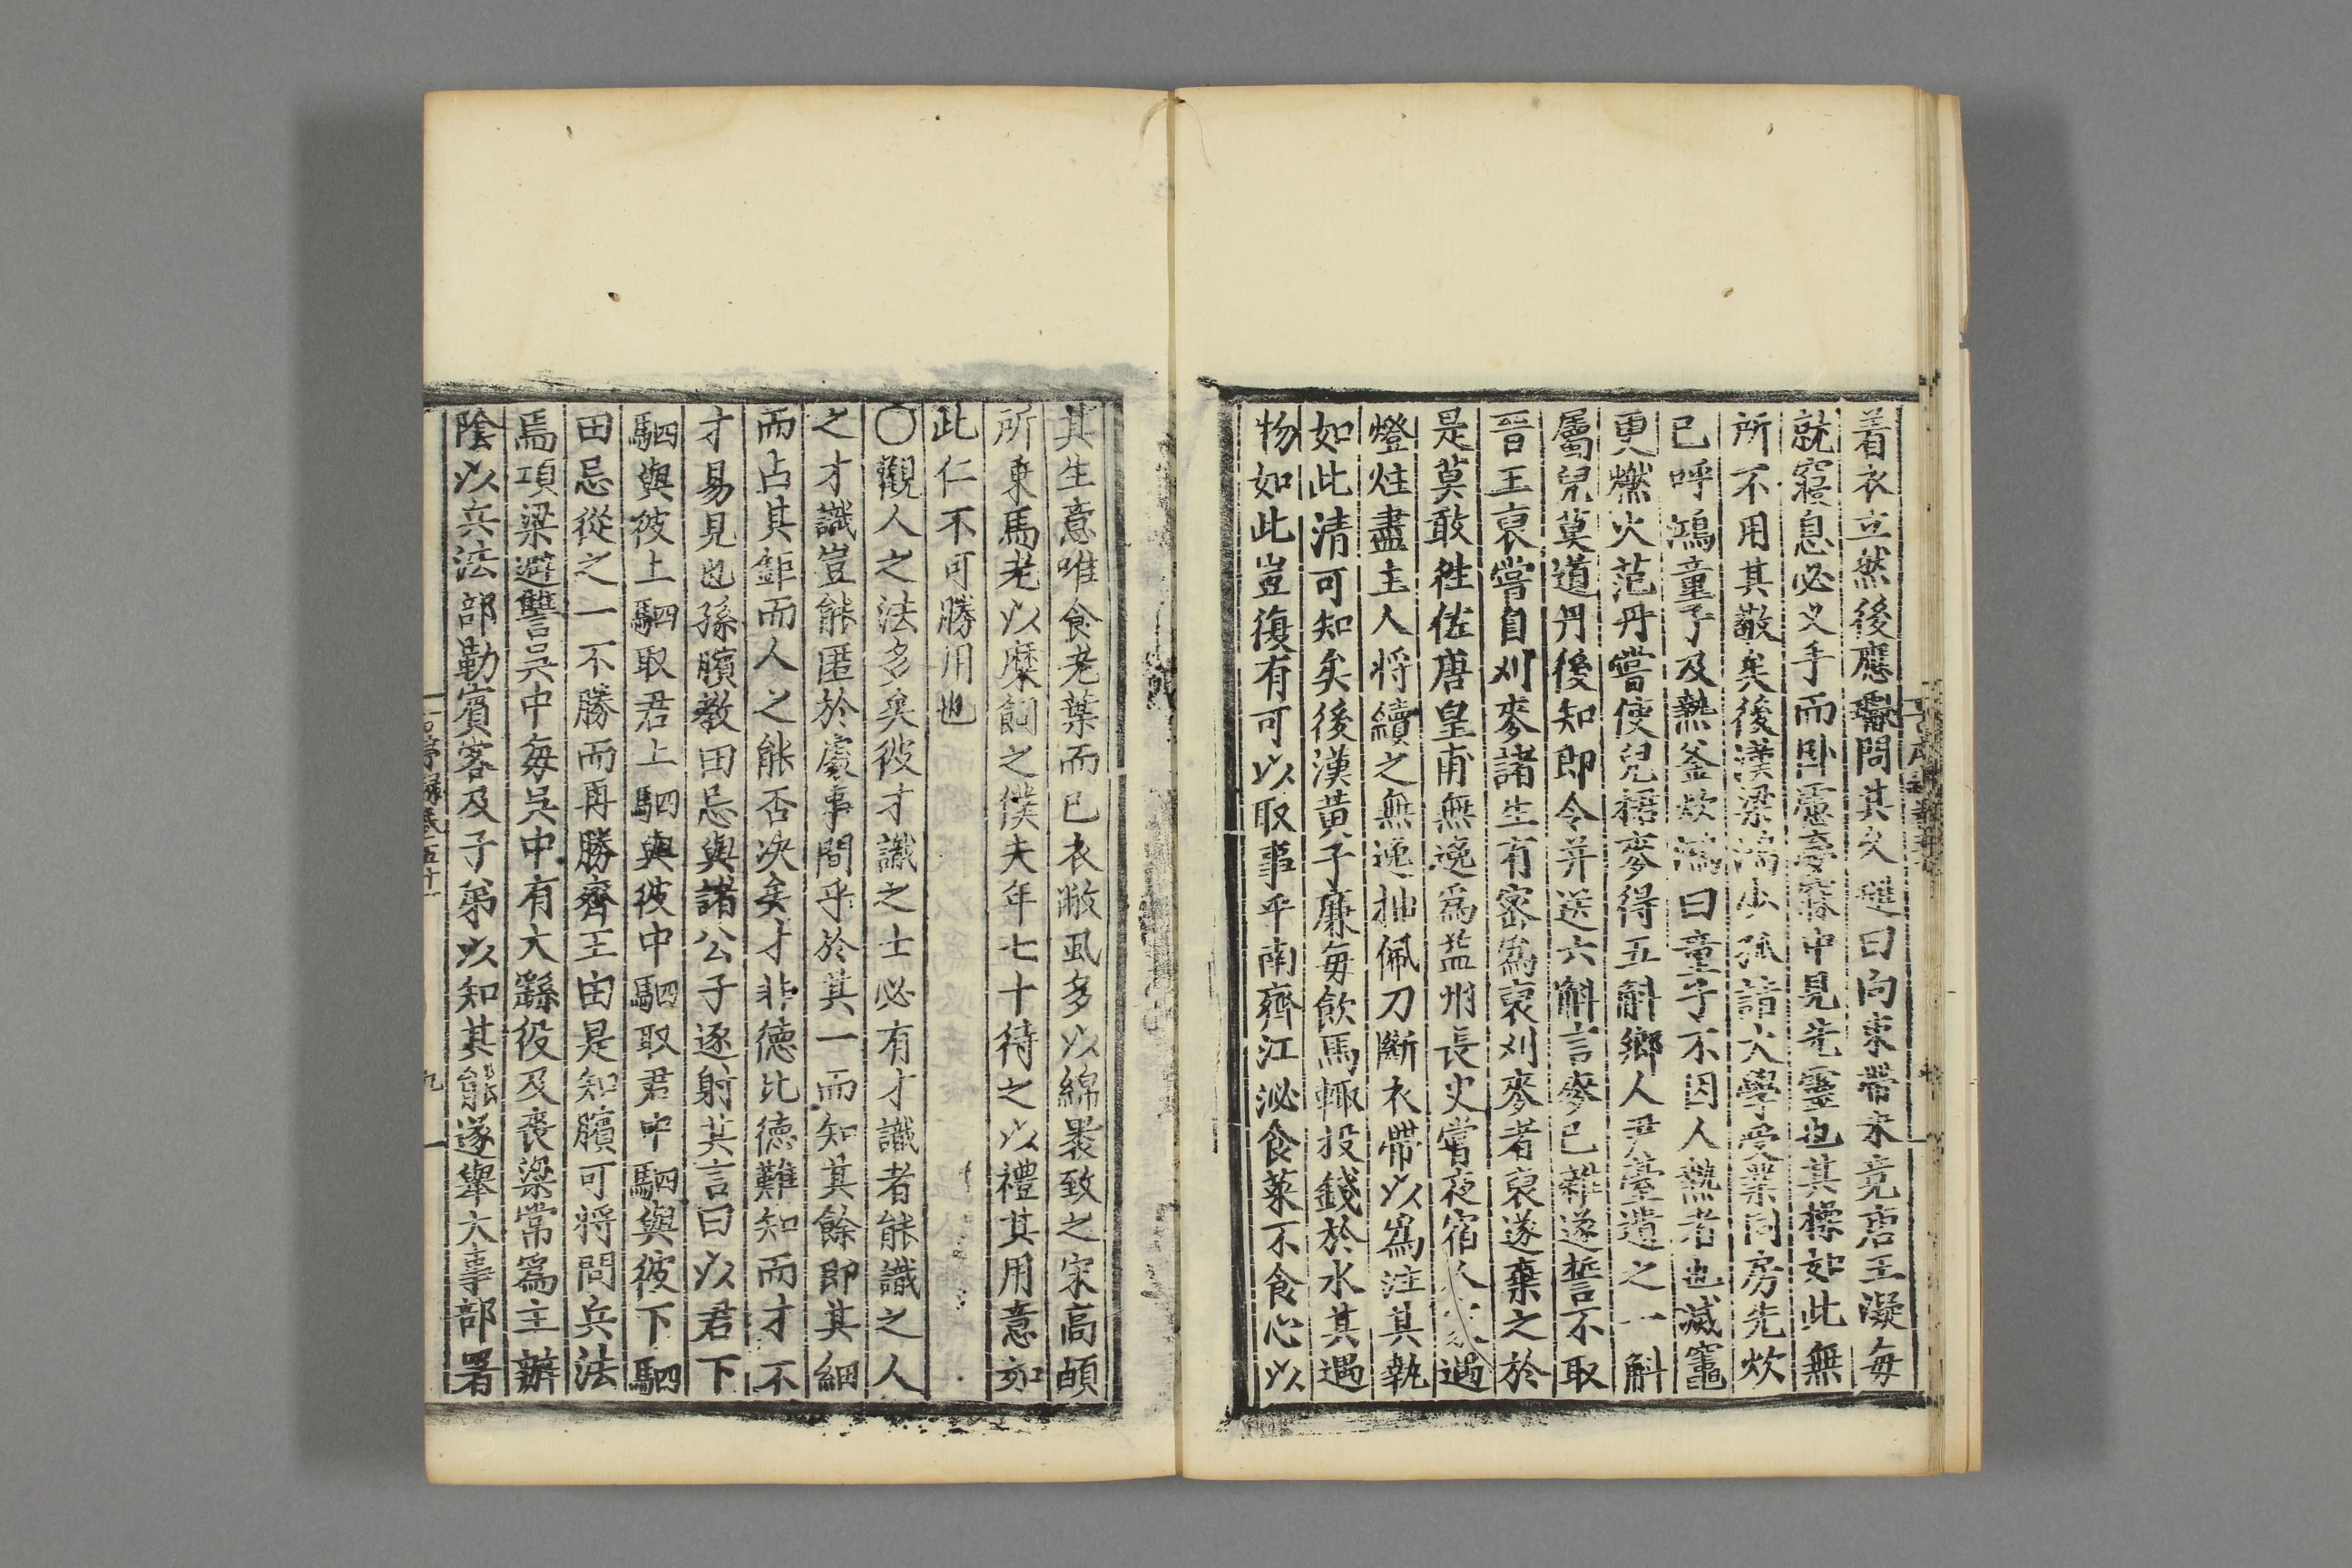 着衣立然後應瓛問其久璡曰向束帶未竟唐王凝每
就寢息必叉手而卧慮夢寐中見先靈也其操如此無
所不用其敬矣後漢梁鴻少孤詣大學受業同房先炊
已呼鴻童子及熱釜炊鴻曰童子不因人熱者也滅竈
更燃火范丹嘗使兒捃麥得五斛鄉人尹臺遺之一斛
屬兒莫道丹後知即令并送六斛言麥已雜遂誓不取
晉王裒嘗自刈麥諸生有密爲裒刈麥者裒遂棄之於
是莫敢徃佐唐皇甫無逸爲益州長史嘗夜宿人家遇
燈炷盡主人將續之無逸抽佩刀斷衣帶以爲注其執
如此清可知矣後漢黃子廉每飲馬輒投錢於水其遇
物如此豈復有可以取事乎南齊江泌食菜不食心以
其生意唯食老葉而已衣敝虱多以綿裹致之宋高頔
所乗馬老以糜飼之僕夫年七十待之以禮其用意如
此仁不可勝用也
〇觀人之法多矣彼才識之士必有才識者能識之人
之才識豈能匿於處事間乎於其一而知其餘即其細
而占其鉅而人之能否决矣才非德比德難知而才不
才易見也孫臏教田忌與諸公子逐射其言曰以君下
駟與彼上駟取君上駟與彼中駟取君中駟與彼下駟
田忌從之一不勝而再勝齊王由是知臏可將問兵法
焉項梁避讐吳中每吳中有大繇役及喪梁常爲主辦
陰以兵法部勒賓客及子弟以知其能遂舉大事部署
九